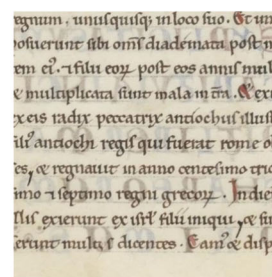 regnum, unusquisq; in loco suo. Et un
posuerunt sibi om̄s diademata post m
em ei⁹. ⁊ filii eoꝝ post eos annis mul
e multiplicata sunt mala in t̄ra. & exi
ex eis radix peccatrix antiochus illust
ili⁹ antiochi regis qui fuerat rome o
es, & regnauit in anno centesimo tric
imo ⁊ septimo regni grecoꝝ. In die
illis exierunt ex isr̄l filii iniqui, & su
erunt multis dicentes. Eam⁹ & disp